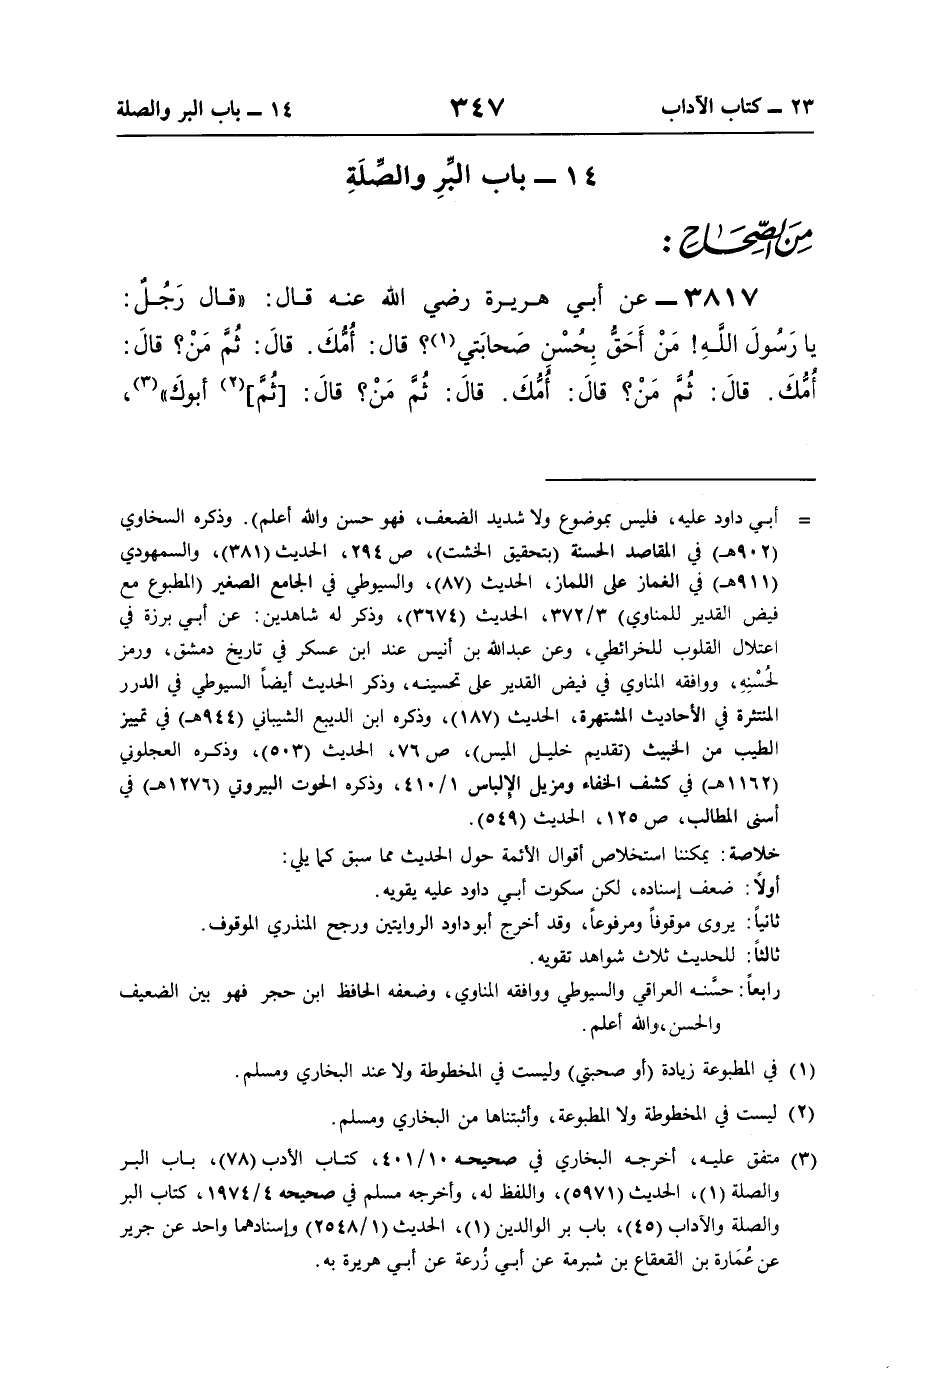 ٢٣ ـ كتاب الآداب ٣٤٧ ١٤ ـ باب البر والصلة
١٤ ـ باب البِّرِ والصِّلَةِ
مِنَ الصِّحَاح :
٣٨١٧ ـ عن أبي هريرة رضي الله عنه قال: «قال رَجُلٌ:
يا رَسُولَ اللَّهِ! مَنْ أَحَقُّ بِحُسْنِ صَحابَتي(١)؟ قال: أُمُّكَ. قالَ: ثُمَّ مَنْ؟ قالَ:
أُمُّكَ. قالَ: ثُمَّ مَنْ؟ قالَ: أُمُّكَ. قالَ: ثُمَّ مَنْ؟ قالَ: [ثُمَّ](٢) أبوكَ»(٣)،
= أبي داود عليه، فليس بموضوع ولا شديد الضعف، فهو حسن والله أعلم). وذكره السخاوي
(٩٠٢هـ) في المقاصد الحسنة (بتحقيق الخشت)، ص ٢٩٤، الحديث (٣٨١)، والسمهودي
(٩١١هـ) في الغماز على اللماز، الحديث (٨٧)، والسيوطي في الجامع الصغير (المطبوع مع
فيض القدير للمناوي) ٣٧٢/٣، الحديث (٣٦٧٤)، وذكر له شاهدين: عن أبي برزة في
اعتلال القلوب للخرائطي، وعن عبدالله بن أنيس عند ابن عسكر في تاريخ دمشق، ورمز
لحُسْنِهِ، ووافقه المناوي في فيض القدير على تحسينه، وذكر الحديث أيضاً السيوطي في الدرر
المنتثرة في الأحاديث المشتهرة، الحديث (١٨٧)، وذكره ابن الديبع الشيباني (٩٤٤هـ) في تمييز
الطيب من الخبيث (تقديم خليل الميس)، ص ٧٦، الحديث (٥٠٣)، وذكره العجلوني
(١١٦٢هـ) في كشف الخفاء ومزيل الإلباس ٤١٠/١، وذكره الحوت البيروتي (١٢٧٦هـ) في
أسنى المطالب، ص ١٢٥، الحديث (٥٤٩).
خلاصة: يمكننا استخلاص أقوال الأئمة حول الحديث مما سبق كما يلي:
أولاً: ضعف إسناده، لكن سكوت أبي داود عليه يقويه.
ثانياً: يروى موقوفاً ومرفوعاً، وقد أخرج أبو داود الروايتين ورجح المنذري الموقوف.
ثالثاً: للحديث ثلاث شواهد تقويه.
رابعاً: حسَّنه العراقي والسيوطي ووافقه المناوي، وضعفه الحافظ ابن حجر فهو بين الضعيف
والحسن، والله أعلم.
(١) في المطبوعة زيادة (أو صحبتي) وليست في المخطوطة ولا عند البخاري ومسلم.
(٢) ليست في المخطوطة ولا المطبوعة، وأثبتناها من البخاري ومسلم.
(٣) متفق عليه، أخرجه البخاري في صحيحه ٤٠١/١٠، كتاب الأدب (٧٨)، باب البر
والصلة (١)، الحديث (٥٩٧١)، واللفظ له، وأخرجه مسلم في صحيحه ١٩٧٤/٤، كتاب البر
والصلة والآداب (٤٥)، باب بر الوالدين (١)، الحديث (٢٥٤٨/١) وإسنادهما واحد عن جرير
عن عُمَارة بن القعقاع بن شبرمة عن أبي زُرعة عن أبي هريرة به.